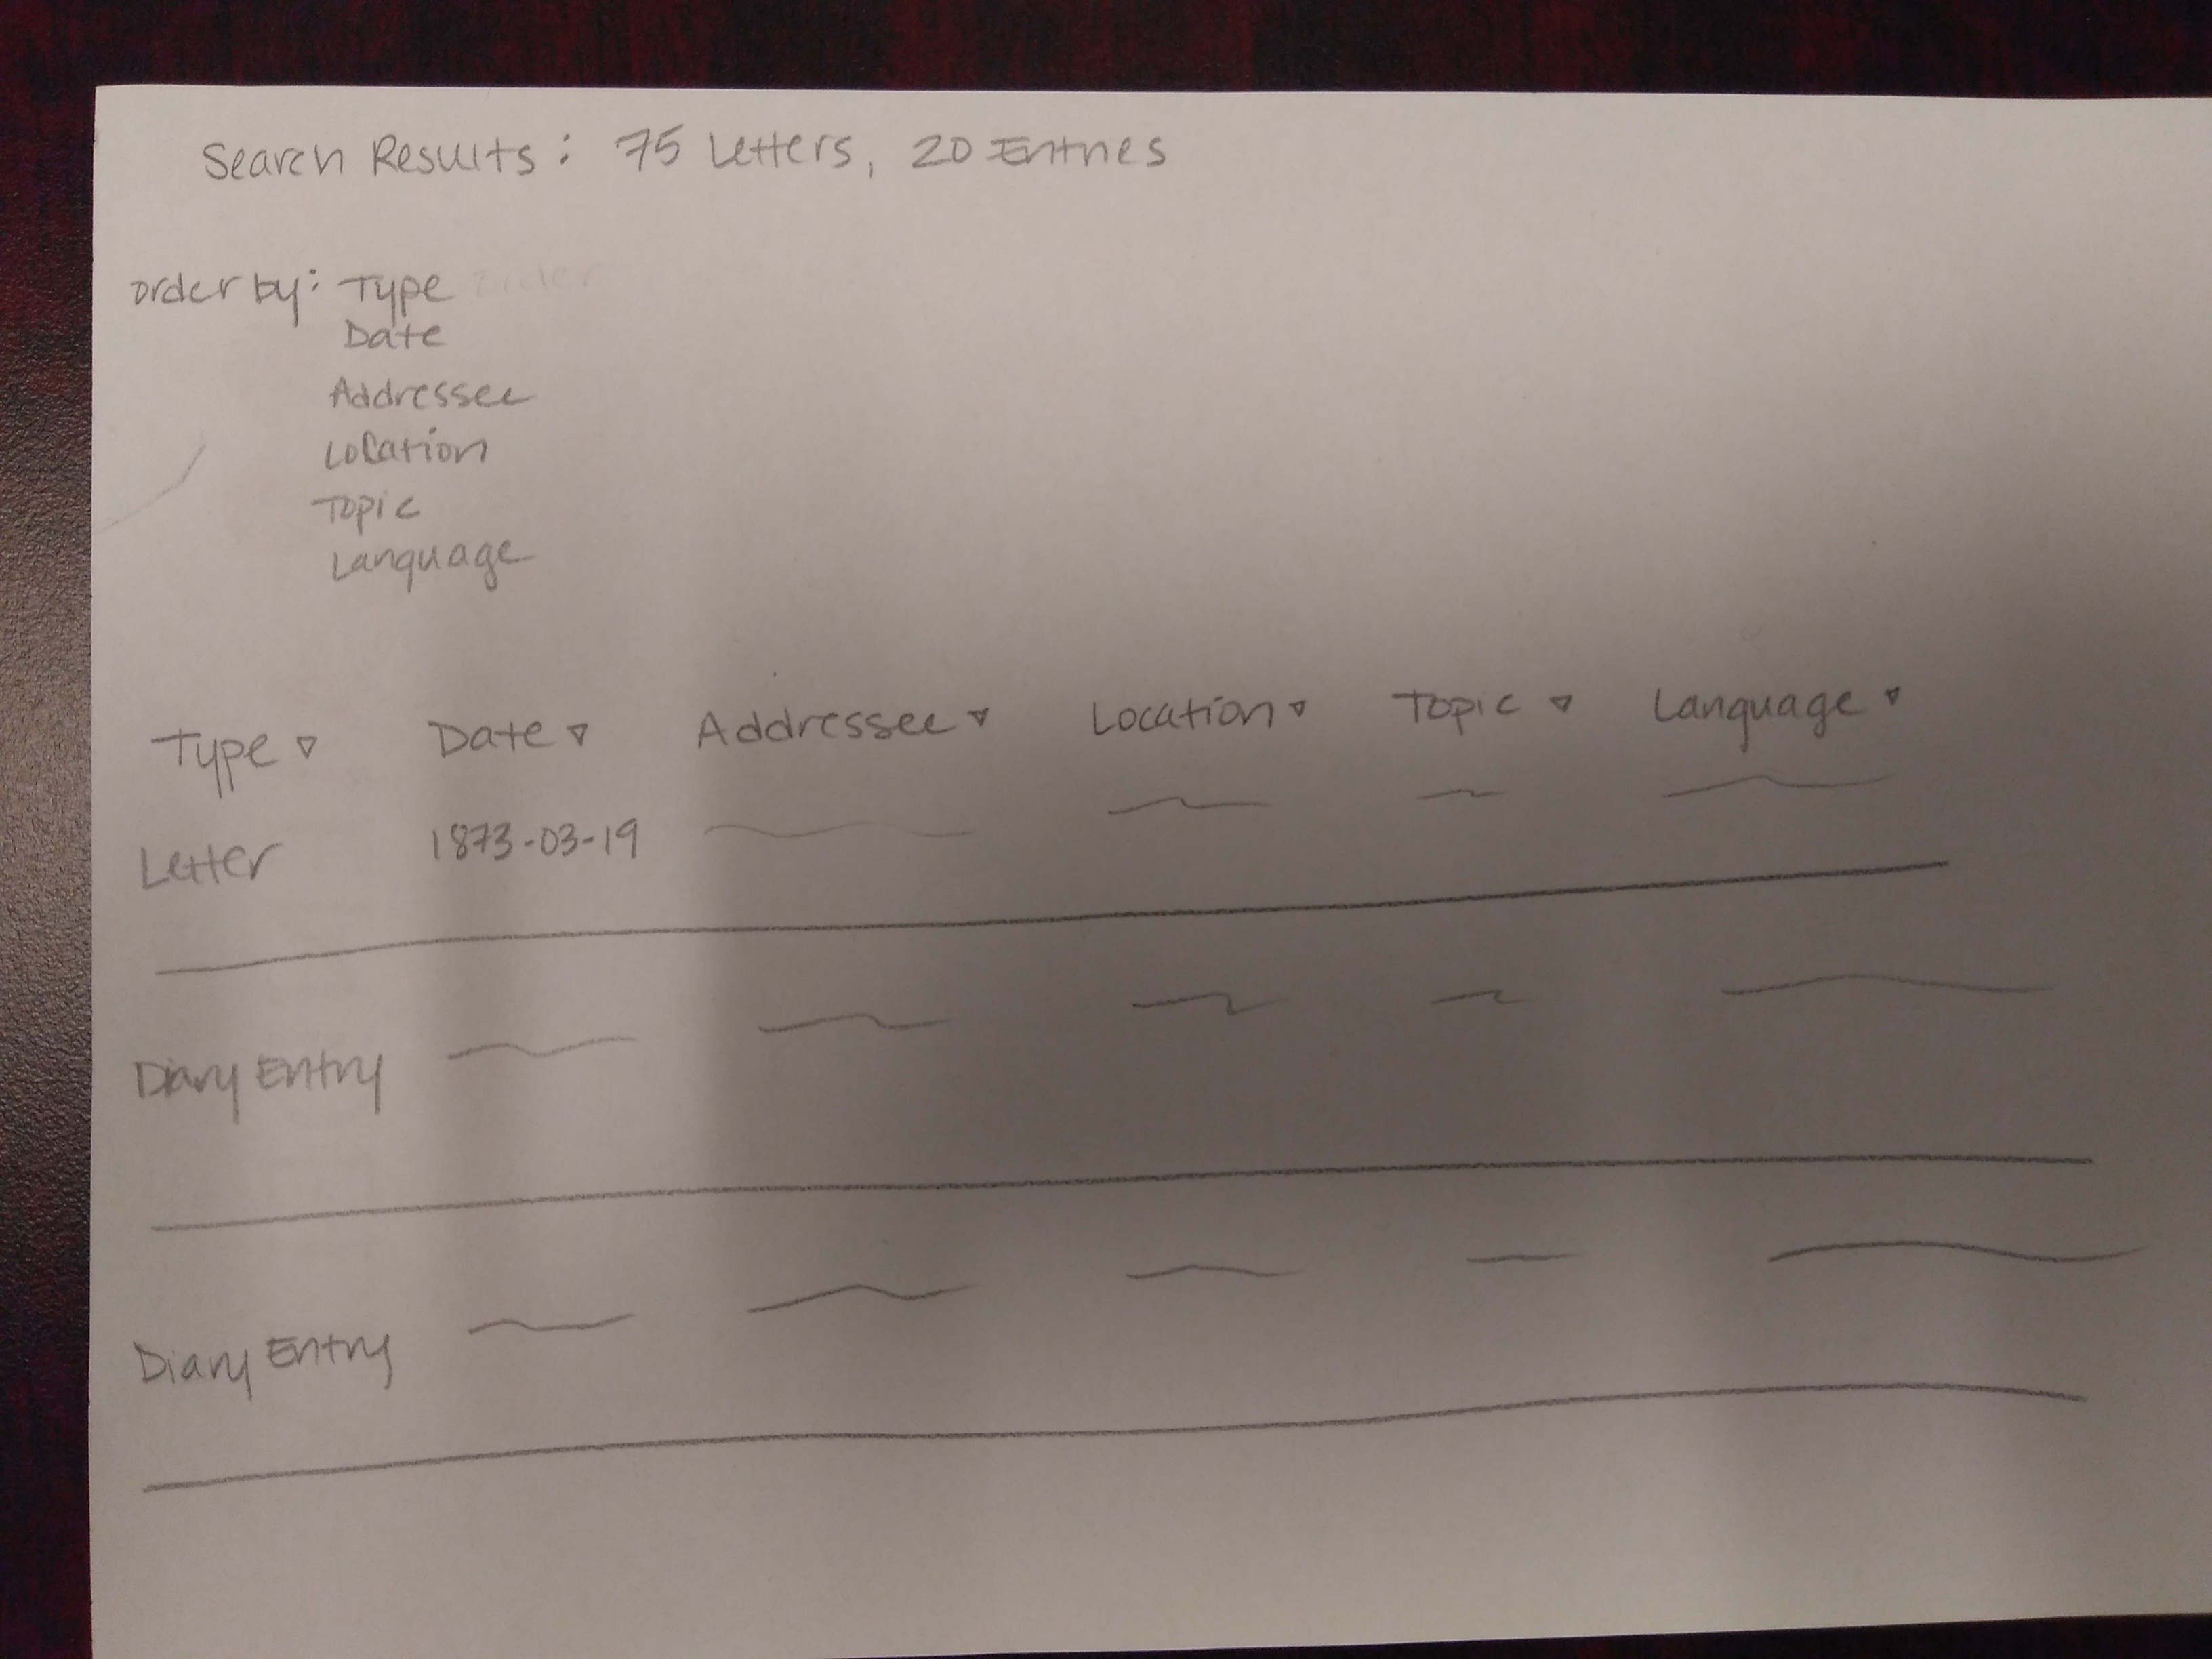 Search Results: 75 Letters, 20 Entries
order by: Type order
Date
Addressee
Location
Topic
Language
Type ▿ Date ▿ Addressee ▿ Location ▿ Topic ▿ Language ▿
Letter 1873-03-19
Diary Entry
Diary Entry